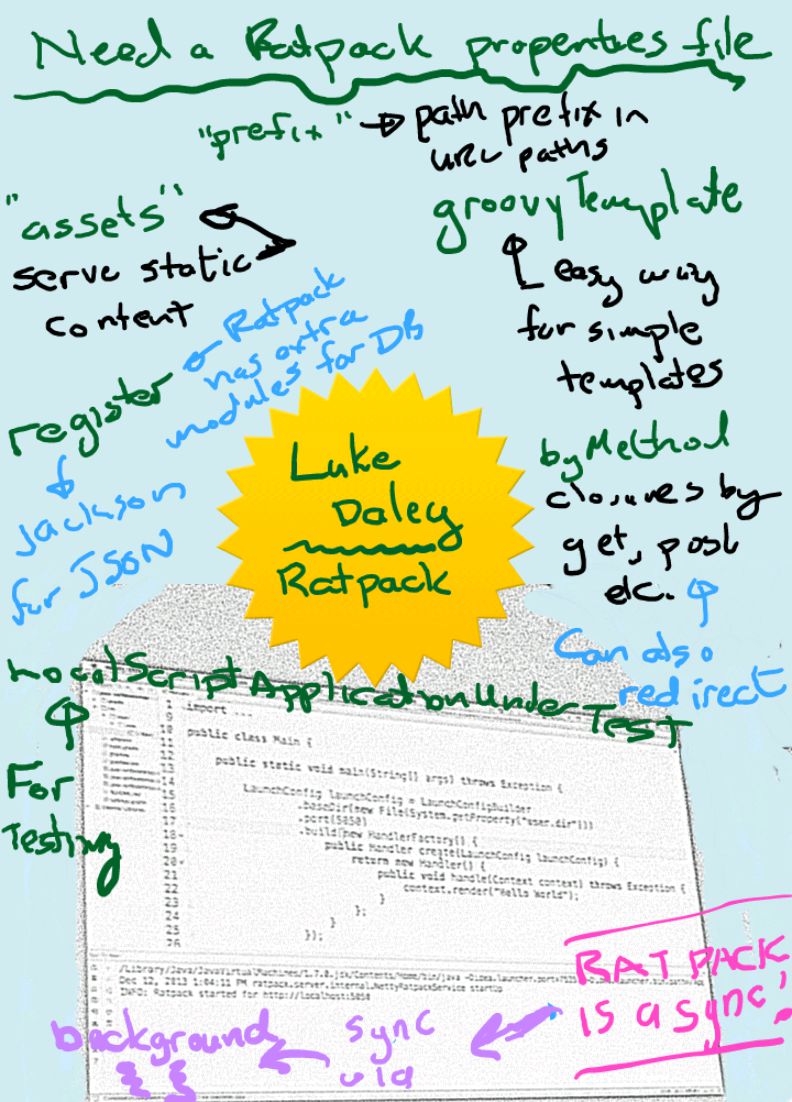 Need a Ratpack properties file
"prefix" → path prefix in
URL paths
"assets"
serve static
content
groovyTemplate
easy way
for simple
templates
register
Ratpack
has extra
modules for DB
Jackson
for JSON
Luke
Daley
Ratpack
byMethod
closures by
get, post
etc.
Can also
redirect
LocalScriptApplicationUnderTest
For
Testing
import ...
public class Main {
public static void main(String[] args) throws Exception {
LaunchConfig launchConfig = LaunchConfigBuilder
.baseDir(new File(System.getProperty("user.dir")))
.port(5050)
.build(new HandlerFactory() {
public Handler create(LaunchConfig launchConfig) {
return new Handler() {
public void handle(Context context) throws Exception {
context.render("Hello World");
}
};
}
});
/Library/Java/JavaVirtualMachines/1.7.0.jdk/Contents/Home/bin/java
Dec 12, 2013 1:04:11 PM ratpack.server.internal.NettyRatpackService startUp
INFO: Ratpack started for http://localhost:5050
RATPACK
is async!
sync
via
background
{ }